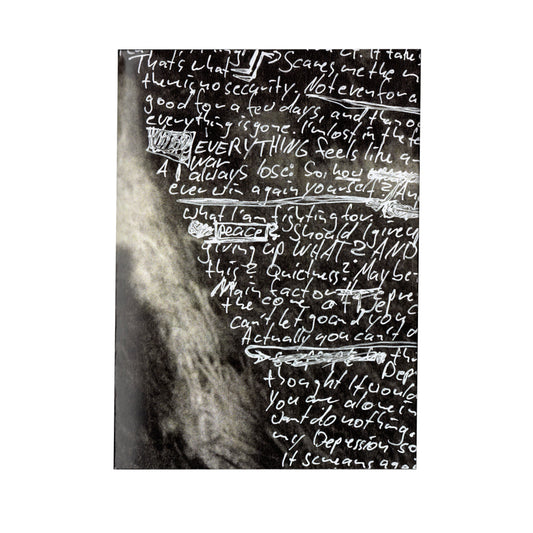 it take
That's what Scares me the m
there is no security, Not even for a
good for a few days, and then o
everything is gone. I'm lost in the fe
EVERYTHING feels like a
war
I always lose. So: how
ever win again yourself? An
what I am fighting for.
peace? Should I give u
giving up WHAT? AND
this? Quietness? Maybe
Main factor Depre
the core of Dep
can't let go and you c
Actually you can't d
the
Dep
thought it would
You are alone in
can't do nothing.
my Depression so
It screams aga